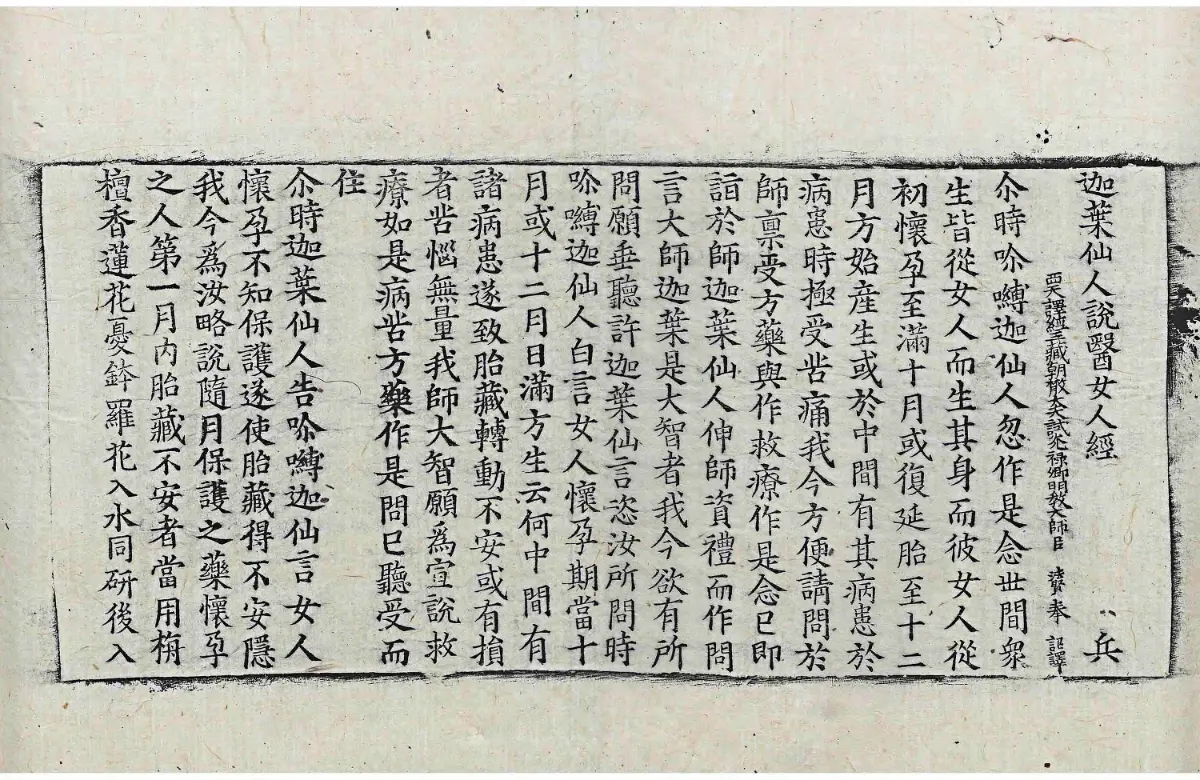 迦葉仙人說醫女人經 兵
西天譯經三藏朝散大夫試光祿卿明教大師臣 賢奉 詔譯
尒時嚩迦仙人忽作是念世間衆
生皆從女人而生其身而彼女人從
初懷孕至滿十月或復延胎至十二
月方始產生或於中間有其病患於
病患時極受苦痛我今方便請問於
師禀受方藥與作救療作是念已即
詣於師迦葉仙人伸師資禮而作問
言大師迦葉是大智者我今欲有所
問願垂聽許迦葉仙言恣汝所問時
嚩迦仙人白言女人懷孕期當十
月或十二月日滿方生云何中間有
諸病患遂致胎藏轉動不安或有損
者苦惱無量我師大智願爲宣說救
療如是病苦方藥作是問已聽受而
住
尒時迦葉仙人告嚩迦仙言女人
懷孕不知保護遂使胎藏得不安隱
我今爲汝略說隨月保護之藥懷孕
之人第一月內胎藏不安者當用栴
檀香蓮花憂鉢羅花入水同研後入